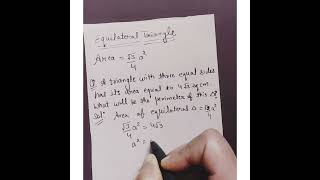 Equilateral Triangle
Area = √3/4 a²
Q. A triangle with three equal sides
has its area equal to 4√3 sq cm.
What will be the perimeter of this
Sol. Area of equilateral Δ = √3/4 a²
√3/4 a² = 4√3
a² =